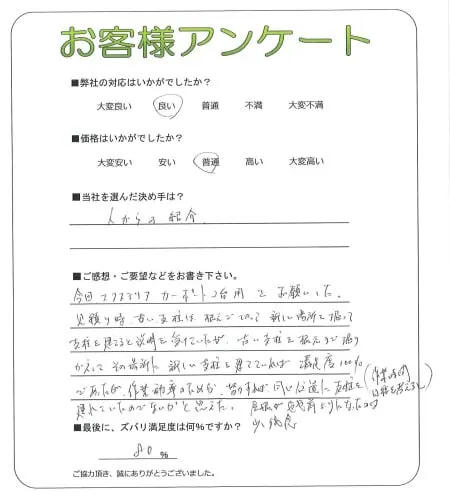 お客様アンケート
■弊社の対応はいかがでしたか?
大変良い 良い 普通 不満 大変不満
■価格はいかがでしたか?
大変安い 安い 普通 高い 大変高い
■当社を選んだ決め手は?
人からの紹介
■ご感想・ご要望などをお書き下さい。
今回エクステリア カーポート2台用をお願いした。
見積り時 古い支柱は根こそぎとって 新しい場所を掘って
支柱を建てると説明を受けていたが、古い支柱を根元から掘り
かえして その場所に新しい支柱を建てていれば 満足度100%
であったが、作業効率のためか、 同じ位置に支柱を
建れていたのでないかと思えた。
(作業時間 を考えると)
少し残念
■最後に、ズバリ満足度は何%ですか?
80%
ご協力頂き、誠にありがとうございました。